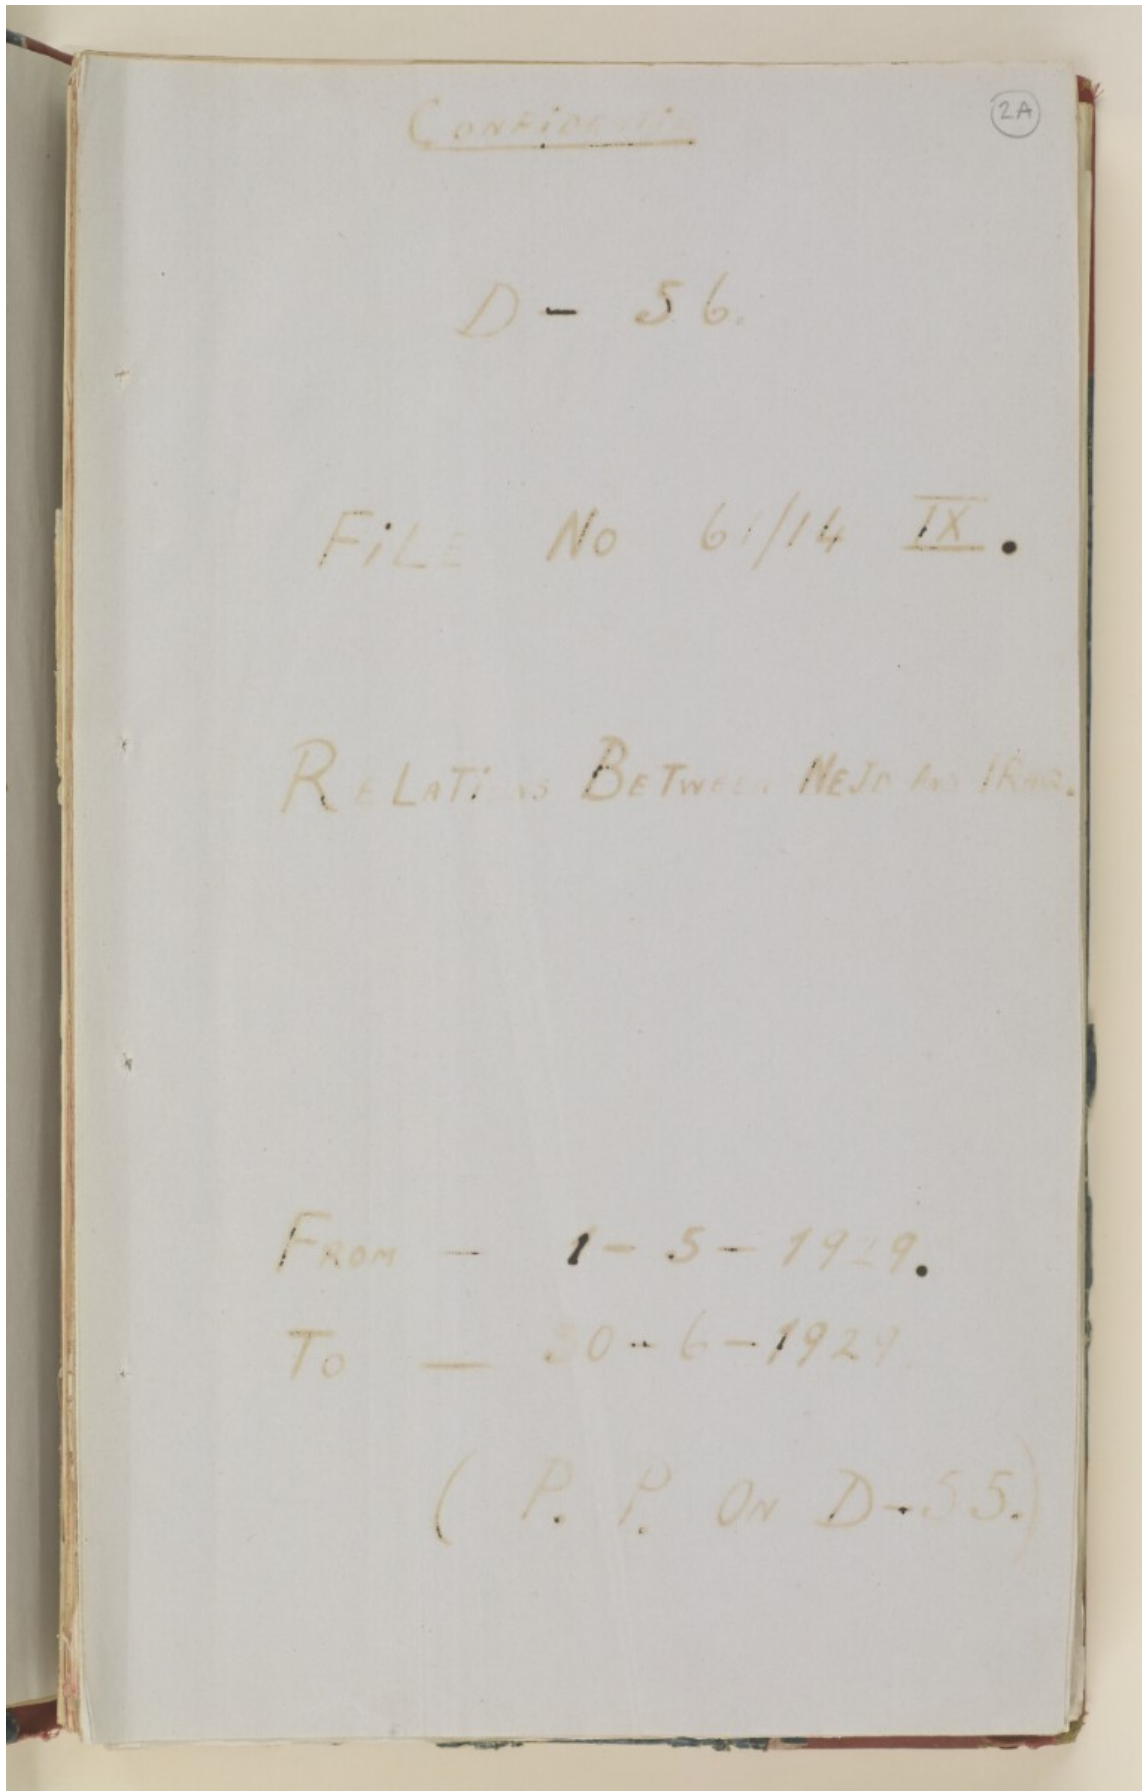 CONFIDENTIAL
2A
D - 56.
FILE No 61/14 IX.
RELATIONS BETWEEN NEJD AND IRAQ.
FROM - 1-5-1929.
To - 30-6-1929
( P. P. ON D-55.)